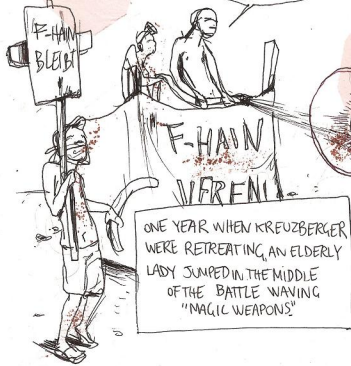 F-HAIN
BLEIBT
F-HAIN
ONE YEAR WHEN KREUZBERGER
WERE RETREATING, AN ELDERLY
LADY JUMPED IN THE MIDDLE
OF THE BATTLE WAVING
"MAGIC WEAPONS"